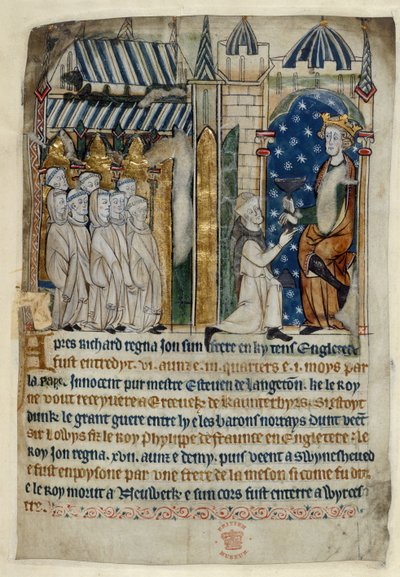 Apres Richard regna Jon sun frere en ky tens Engletere
fust entredyt .vi. aunz e .iii. quarters e .i. moys par
la Pape Innocent pur mestre Estevene de Langeton. ke le Roy
ne vout receyvere a Ercevek de Kaunterbyrs. si
dunk le grant guere entre ly e les barons norrays dunt veent
sir Lowys fiz le roy Phylipe de Fraunce en Engletere. le
Roy Jon regna .xvii. aunz e demy. puis veent a Swynesheued
e fust enpoysone par une frere de la meson si come fu dit
e le Roy morut a Neuwerk e sun cors fust enterre a
BRITISH
MUSEUM